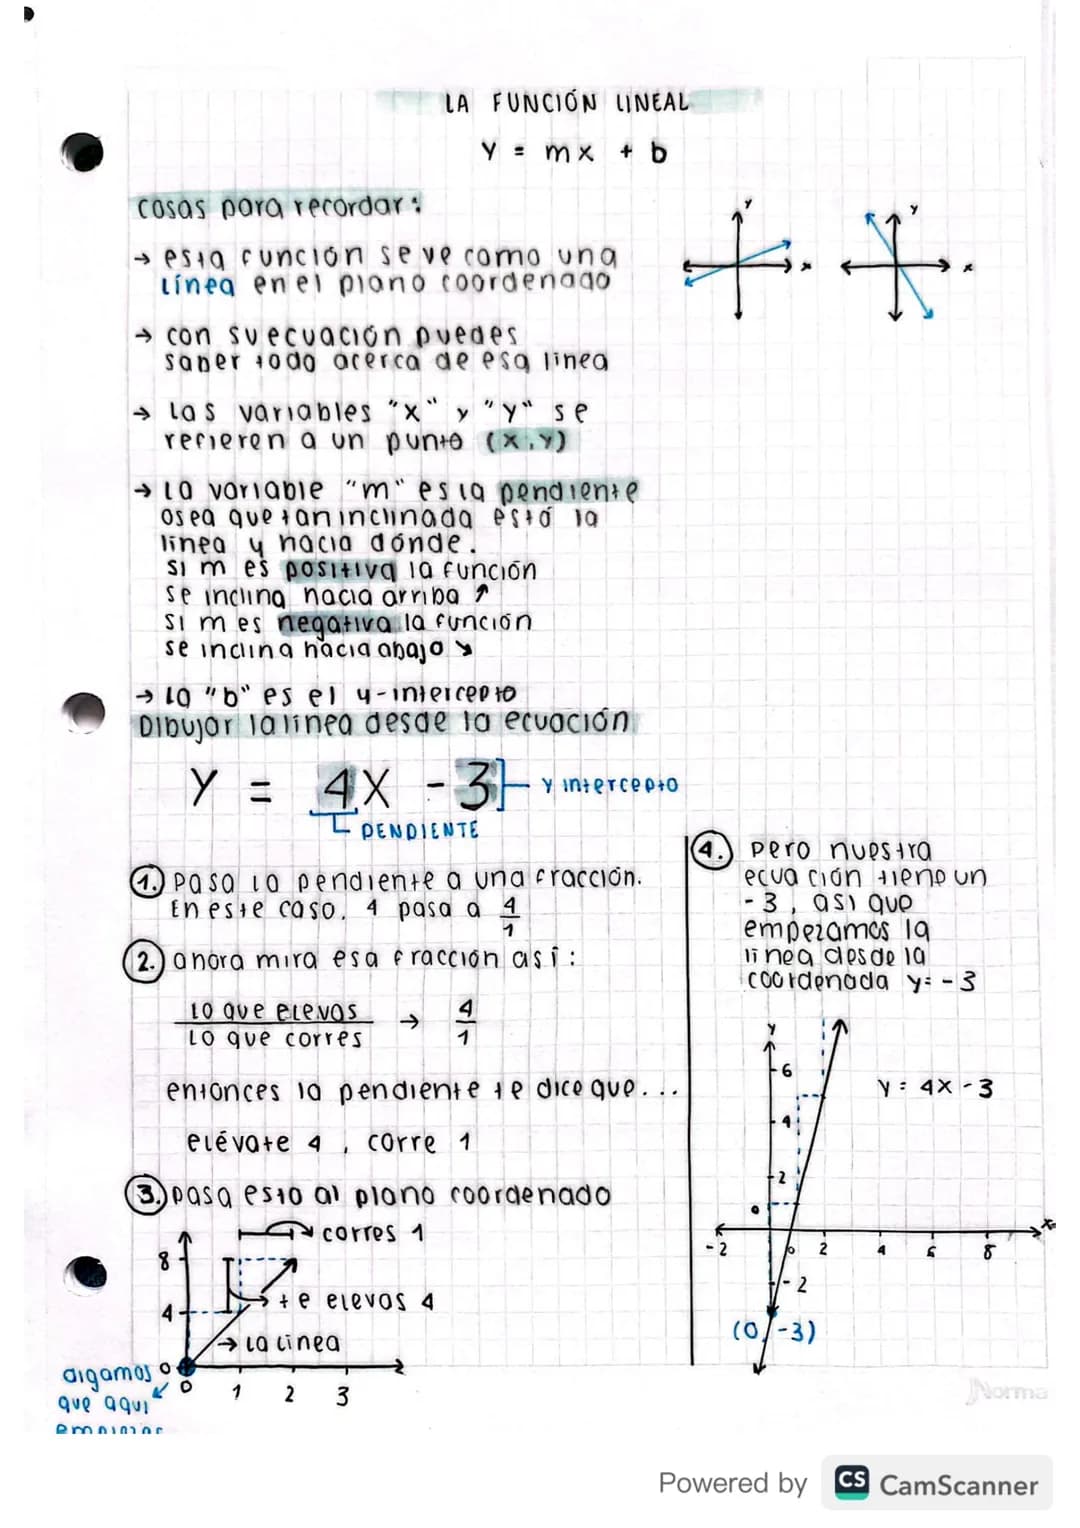 LA FUNCIÓN LINEAL
y = mx + b
cosas para recordar:
→ esta función se ve como una
línea en el plano coordenado
→ con su ecuación puedes
saber todo acerca de esa linea
→ Las variables "x" y "y" se
refieren a un punto (x,y)
→ La variable "m" es la pendiente
osea que tan inclinada está la
línea y hacia dónde.
si m es positiva la función
se inclina hacia arriba ↗
si m es negativa la función
se inclina hacia abajo ↘
→ La "b" es el y-intercepto
Dibujar la línea desde la ecuación
y = 4x - 3
y intercepto
PENDIENTE
1. pasa la pendiente a una fracción.
En este caso, 4 pasa a 4/1
2. ahora mira esa fracción así:
Lo que elevas → 4
Lo que corres 1
entonces la pendiente te dice que...
elévate 4, corre 1
3. pasa esto al plano coordenado
corres 1
8
te elevas 4
4
→ La linea
0
0 1 2 3
digamos
que aqui
empiezas
4. pero nuestra
ecuación tiene un
-3, asi que
empezamos la
línea desde la
coordenada y=-3
y
6
y = 4x - 3
4
2
0
x
-2 0 2 4 6 8
-2
(0,-3)
x y
x y
Norma
Powered by CS CamScanner